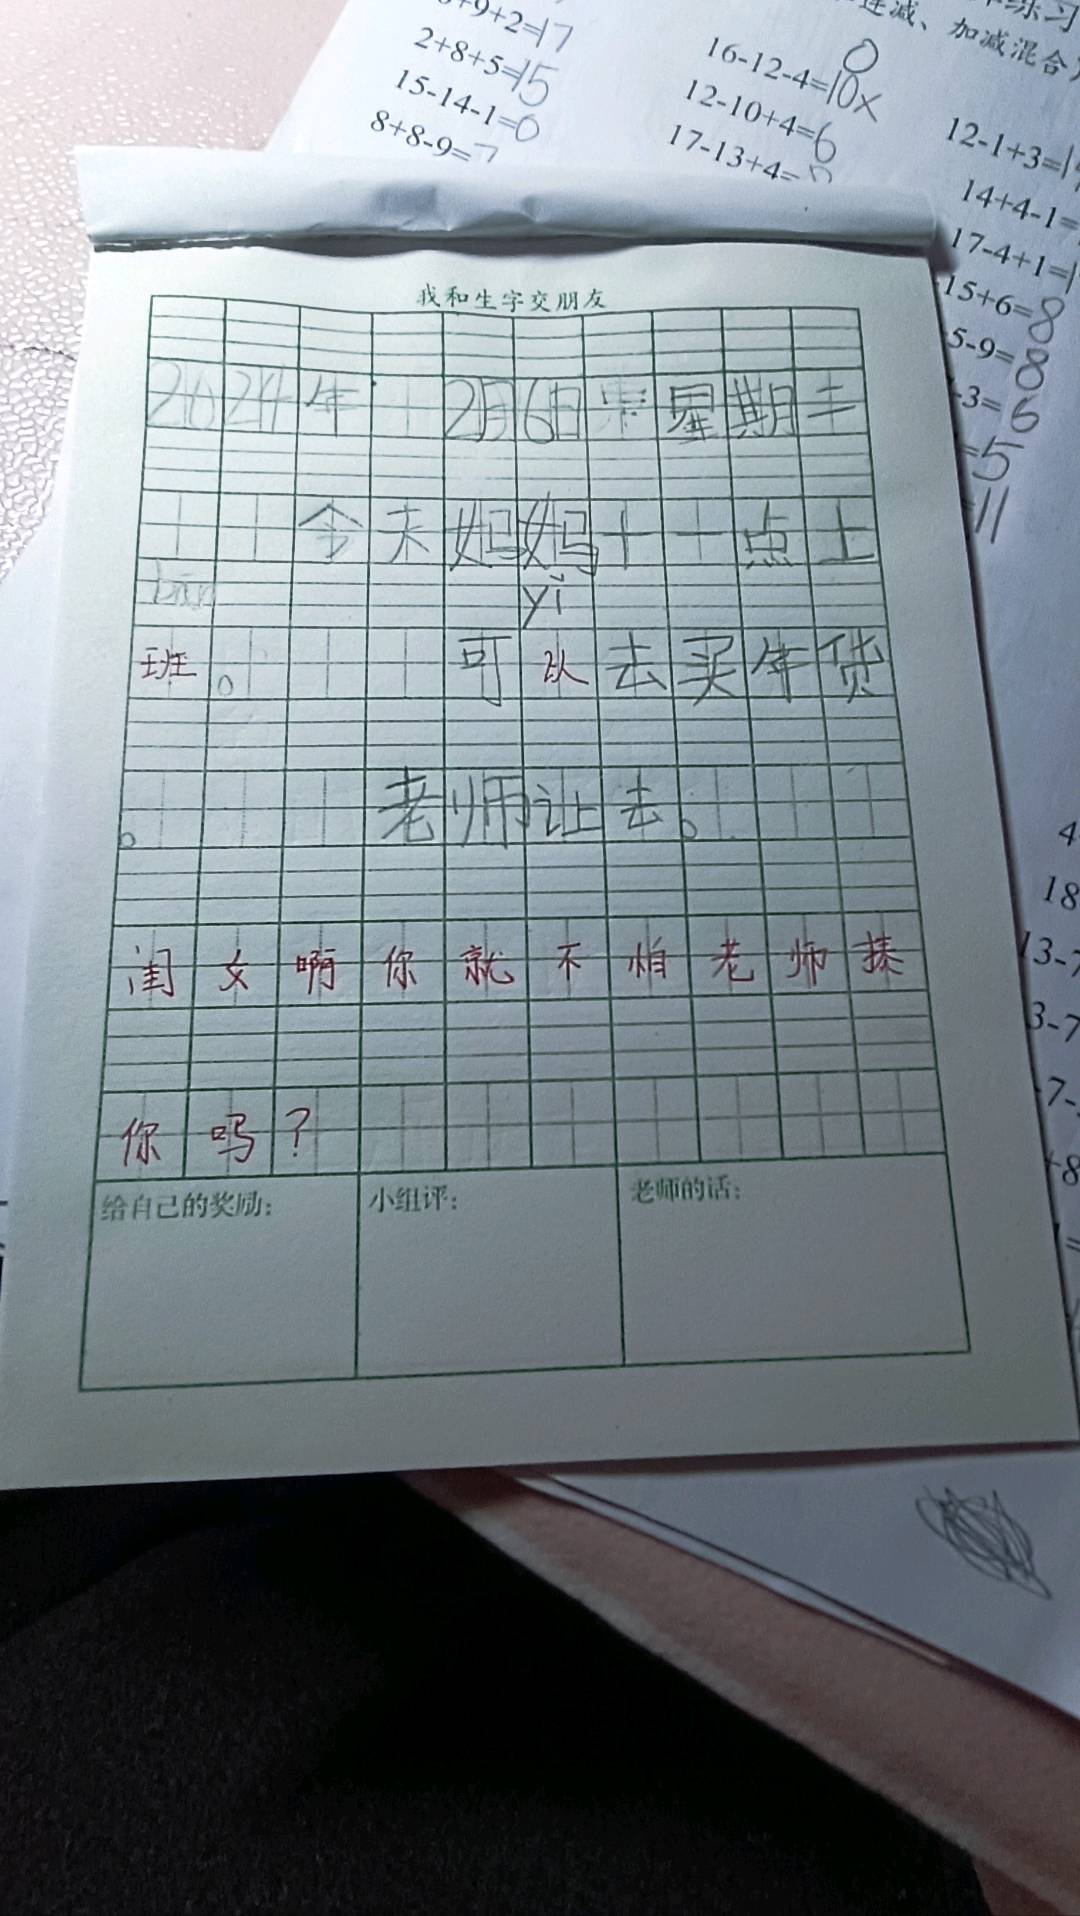 9+9+2=17
2+8+5=15
15-14-1=0
8+8-9=7
0
16-12-4=10x
12-10+4=6
17-13+4=
连减、加减混合
练习
12-1+3=1
14+4-1=
17-4+1=1
15+6=8
5-9=8
-3=6
=5
=11
我和生字交朋友
2024年 2月6日 星期二
今天妈妈十 点上
bān
yǐ
班。 可以去买年货
。 老师让去。
闺女啊你就不怕老师揍
你吗?
给自己的奖励:
小组评:
老师的话:
4
18
13-7
3-7
7-
+8